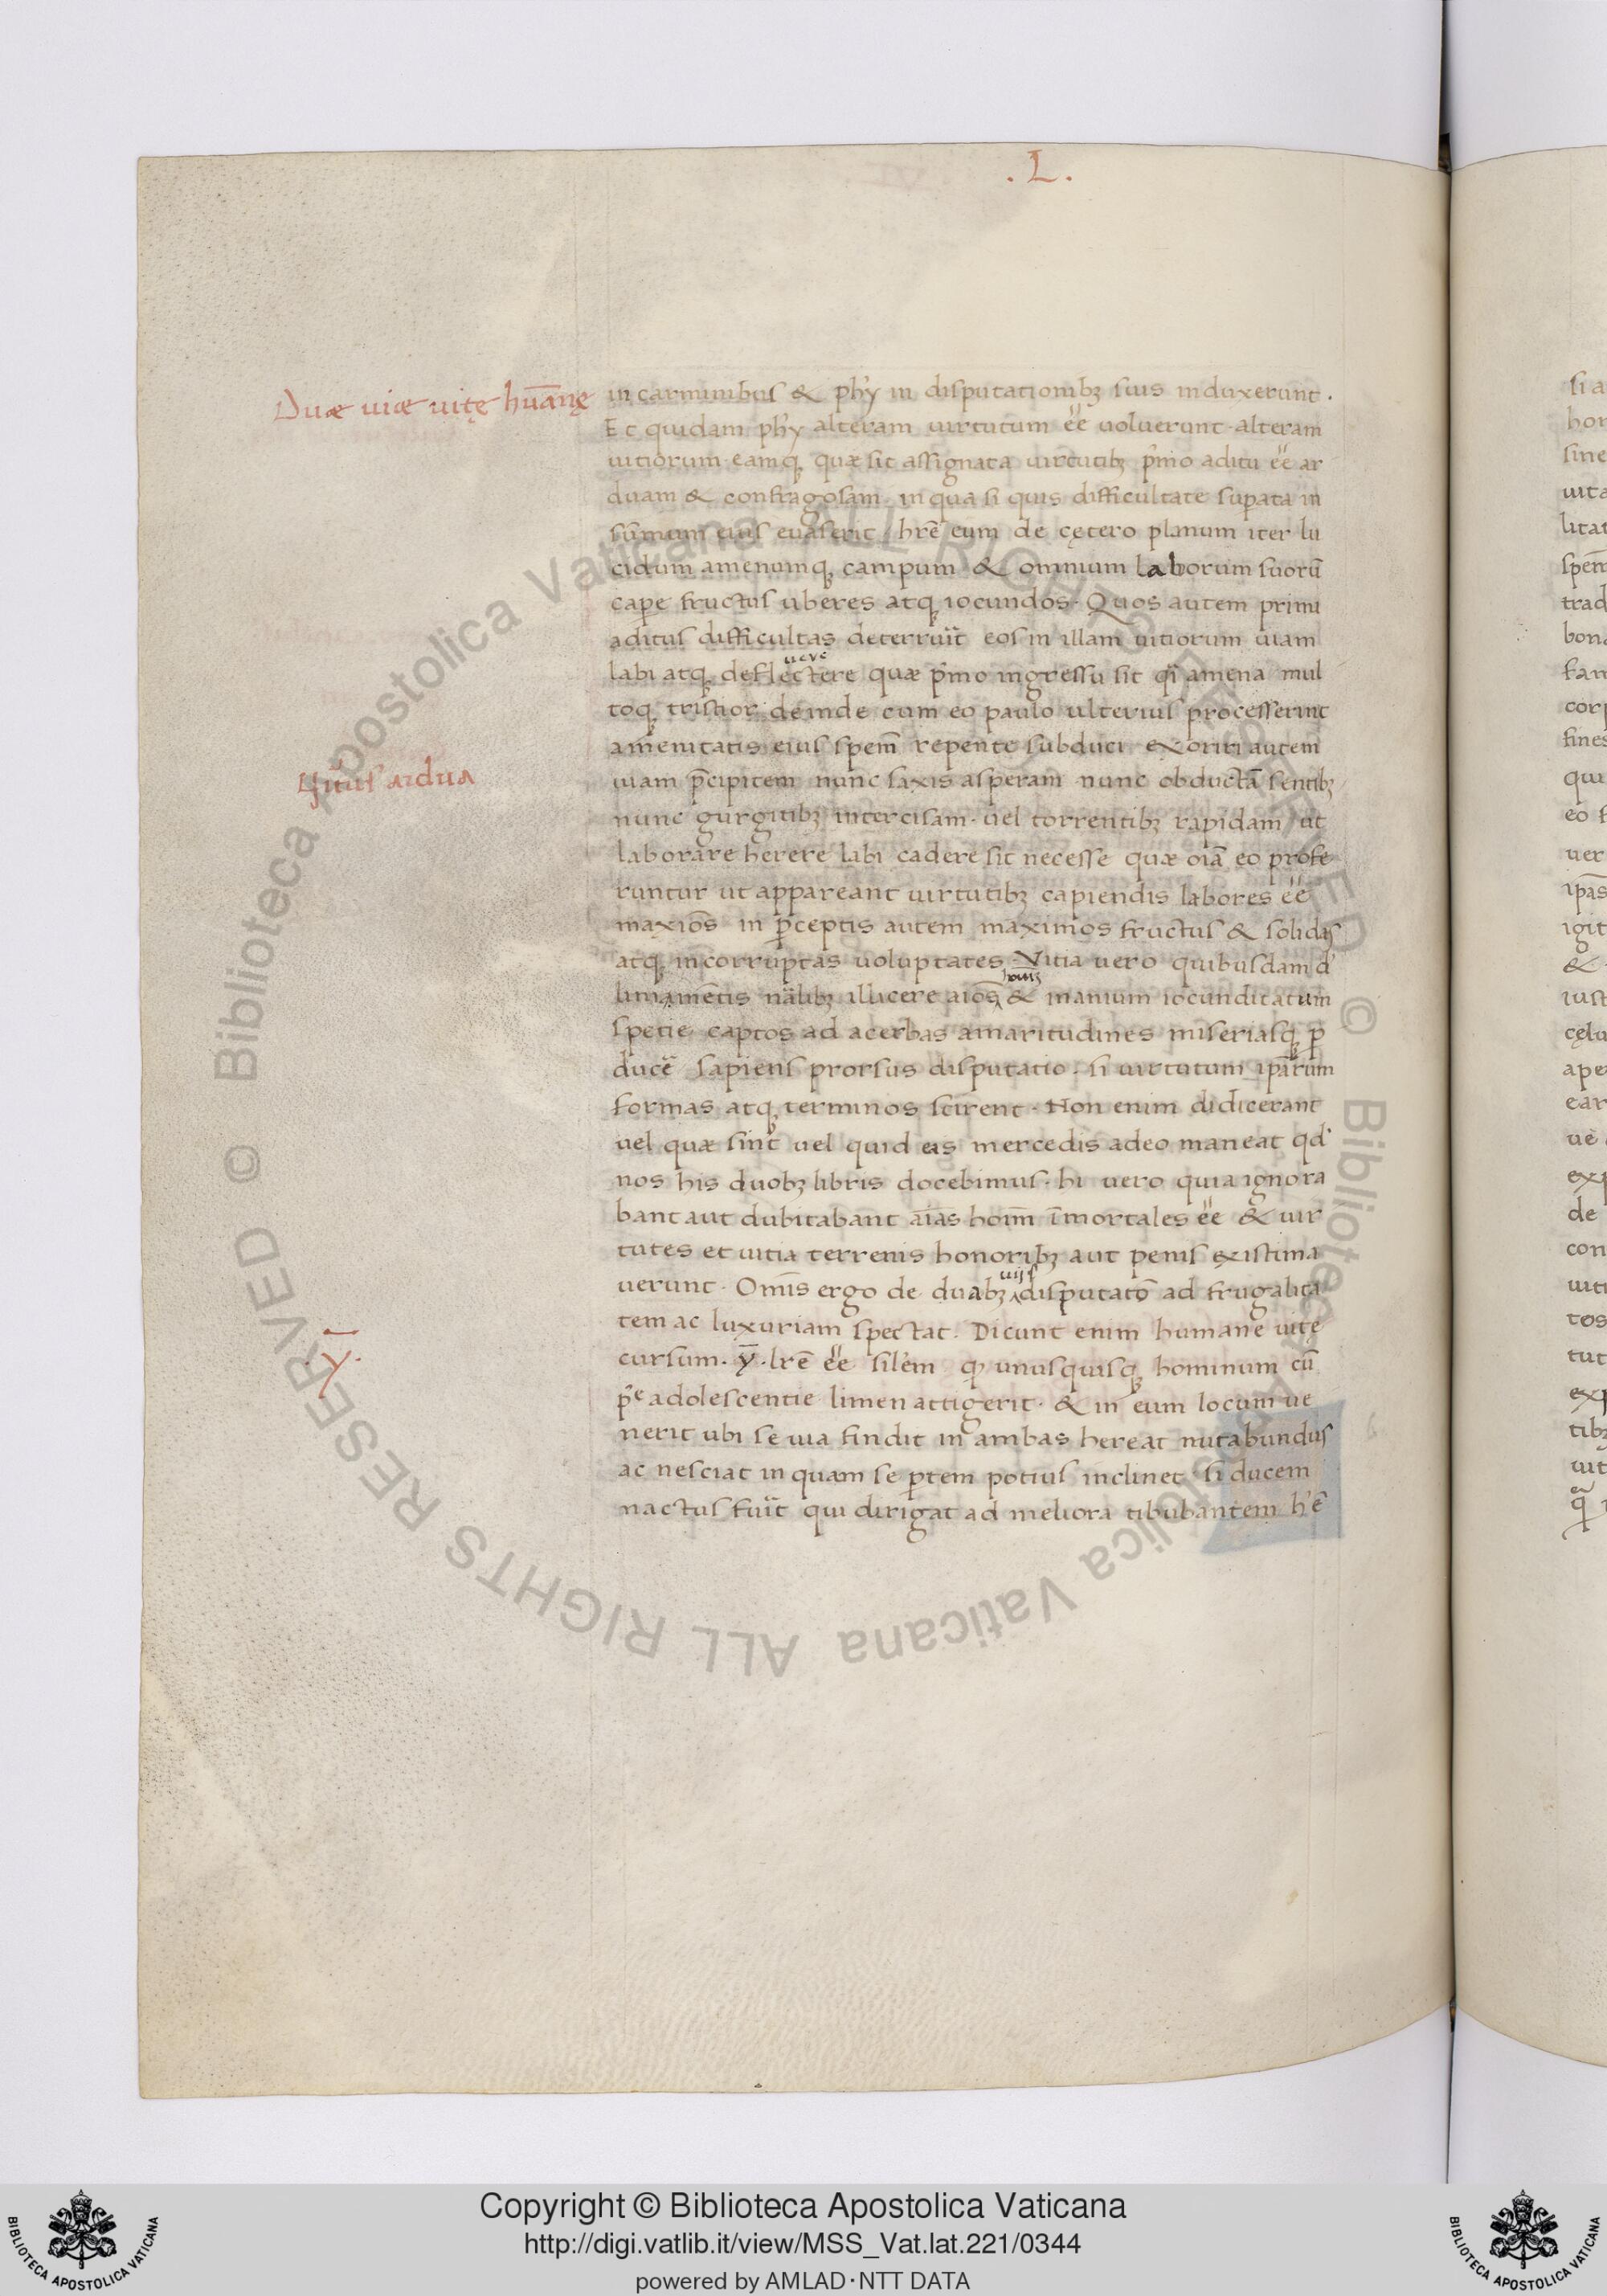 .L.
Duæ uiæ uitę hūanę
in carminibus & phỹ in disputationibꝫ suis induxerunt.
Et quidam phỹ alteram uirtutum ee̎ uoluerunt · alteram
uitiorum · eamqꝫ quæ sit assignata uirtutibꝫ p̃mo aditu ee̎ ar
duam & confragosam · in qua si quis difficultate supata in
summum eius euaserit hrē eum de cętero planum iter lu
cidum amenumqꝫ campum & omnium laborum suorū
cape fructus uberes atqꝫ iocundos · Quos autem primi
aditus difficultas deterruit eos in illam uitiorum uiam
labi atqꝫ deflectere quæ p̃mo ingressu sit qi amena mul
toqꝫ tristior deinde cum eo paulo ulterius processerint
amenitatis eius spem̄ repente subduci exoriri autem
uiam p̄cipitem nunc saxis asperam nunc obductā sentibꝫ
uirtus ardua
nunc gurgitibꝫ intercisam · uel torrentibꝫ rapidam ut
laborare herere labi cadere sit necesse quæ oīa eo profe
runtur ut appareant uirtutibꝫ capiendis labores ee̎
maxiōs in p̄ceptis autem maximos fructus & solidas
atqꝫ incorruptas uoluptates · Vitia uero quibusdam d'
limamētis nālibꝫ illicere aiōs & inanium iocunditatum
spetie captos ad acerbas amaritudines miseriasqꝫ p
ducē sapiens prorsus disputatio · si uirtutum ipārum
formas atqꝫ terminos scirent · Non enim didicerant
uel quæ sint uel quid eas mercedis adeo maneat qd'
nos his duobꝫ libris docebimus · hi uero quia ignora
bant aut dubitabant aīas hoim̄ īmortales ee̎ & uir
tutes et uitia terrenis honoribꝫ aut penis existima
uerunt · Omīs ergo de duabꝫ uijs disputatō ad frugalita
tem ac luxuriam spectat · Dicunt enim humane uitę
cursum · ȳ · lrē ee̎ silem qꝫ unusquisqꝫ hominum cū
.ȳ.
p̃e adolescentie limen attigerit · & in eum locum ue
nerit ubi se uia findit in ambas hereat nutabundus
ac nesciat in quam se ptem potius inclinet · si ducem
nactus fuit qui dirigat ad meliora titubantem h'ē
Copyright © Biblioteca Apostolica Vaticana
http://digi.vatlib.it/view/MSS_Vat.lat.221/0344
powered by AMLAD·NTT DATA